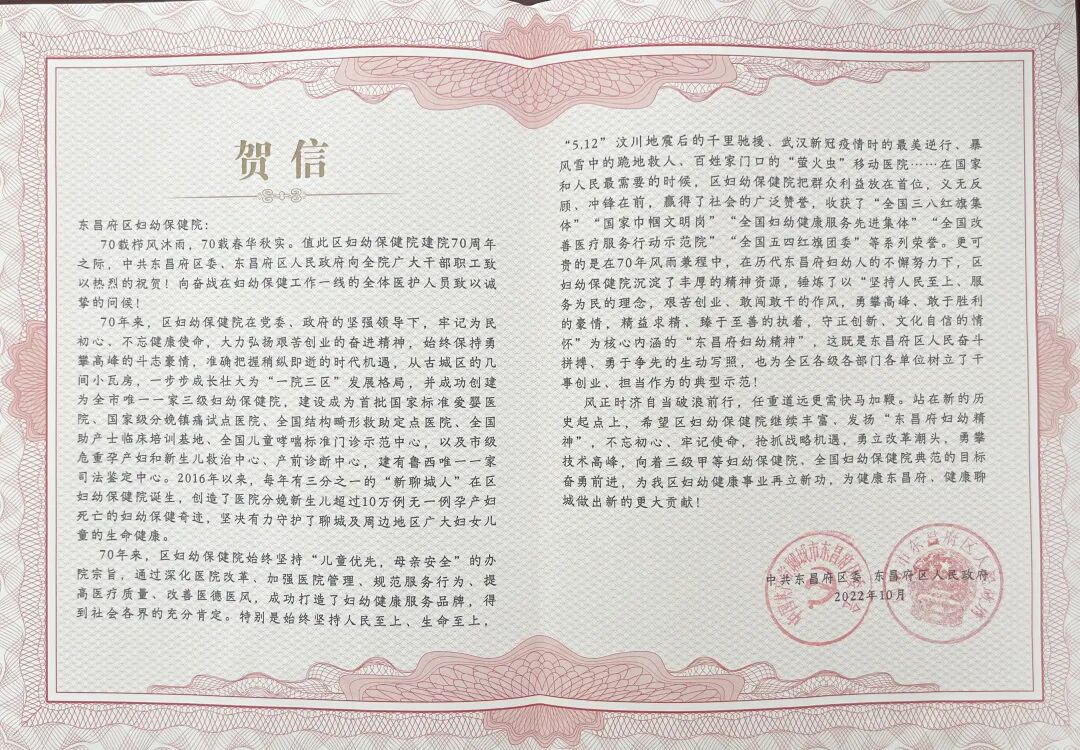 贺信
东昌府区妇幼保健院:
70载栉风沐雨，70载春华秋实。值此区妇幼保健院建院70周年
之际，中共东昌府区委、东昌府区人民政府向全院广大干部职工致
以热烈的祝贺！向奋战在妇幼保健工作一线的全体医护人员致以诚
挚的问候！
70年来，区妇幼保健院在党委、政府的坚强领导下，牢记为民
初心、不忘健康使命，大力弘扬艰苦创业的奋进精神，始终保持勇
攀高峰的斗志豪情，准确把握稍纵即逝的时代机遇，从古城区的几
间小瓦房，一步步成长壮大为“一院三区”发展格局，并成功创建
为全市唯一一家三级妇幼保健院，建设成为首批国家标准爱婴医
院、国家级分娩镇痛试点医院、全国结构畸形救助定点医院、全国
助产士临床培训基地、全国儿童哮喘标准门诊示范中心，以及市级
危重孕产妇和新生儿救治中心、产前诊断中心，建有鲁西唯一一家
司法鉴定中心。2016年以来，每年有三分之一的“新聊城人”在区
妇幼保健院诞生，创造了医院分娩新生儿超过10万例无一例孕产妇
死亡的妇幼保健奇迹，坚决有力守护了聊城及周边地区广大妇女儿
童的生命健康。
70年来，区妇幼保健院始终坚持“儿童优先，母亲安全”的办
院宗旨，通过深化医院改革、加强医院管理、规范服务行为、提
高医疗质量、改善医德医风，成功打造了妇幼健康服务品牌，得
到社会各界的充分肯定。特别是始终坚持人民至上、生命至上，
“5.12”汶川地震后的千里驰援、武汉新冠疫情时的最美逆行、暴
风雪中的跪地救人、百姓家门口的“萤火虫”移动医院……在国家
和人民最需要的时候，区妇幼保健院把群众利益放在首位，义无反
顾、冲锋在前，赢得了社会的广泛赞誉，收获了“全国三八红旗集
体”“国家巾帼文明岗”“全国妇幼健康服务先进集体”“全国改
善医疗服务行动示范医院”“全国五四红旗团委”等系列荣誉。更可
贵的是在70年风雨兼程中，在历代东昌府妇幼人的不懈努力下，区
妇幼保健院沉淀了丰厚的精神资源，锤炼了以“坚持人民至上、服
务为民的理念，艰苦创业、敢闯敢干的作风，勇攀高峰、敢于胜利
的豪情，精益求精、臻于至善的执着，守正创新、文化自信的情
怀”为核心内涵的“东昌府妇幼精神”，这既是东昌府区人民奋斗
拼搏、勇于争先的生动写照，也为全区各级各部门各单位树立了干
事创业、担当作为的典型示范！
风正时济自当破浪前行，任重道远更需快马加鞭。站在新的历
史起点上，希望区妇幼保健院继续丰富、发扬“东昌府妇幼精
神”，不忘初心、牢记使命，抢抓战略机遇，勇立改革潮头，勇攀
技术高峰，向着三级甲等妇幼保健院、全国妇幼保健院典范的目标
奋勇前进，为我区妇幼健康事业再立新功，为健康东昌府、健康聊
城做出新的更大贡献！
中共东昌府区委 东昌府区人民政府
2022年10月